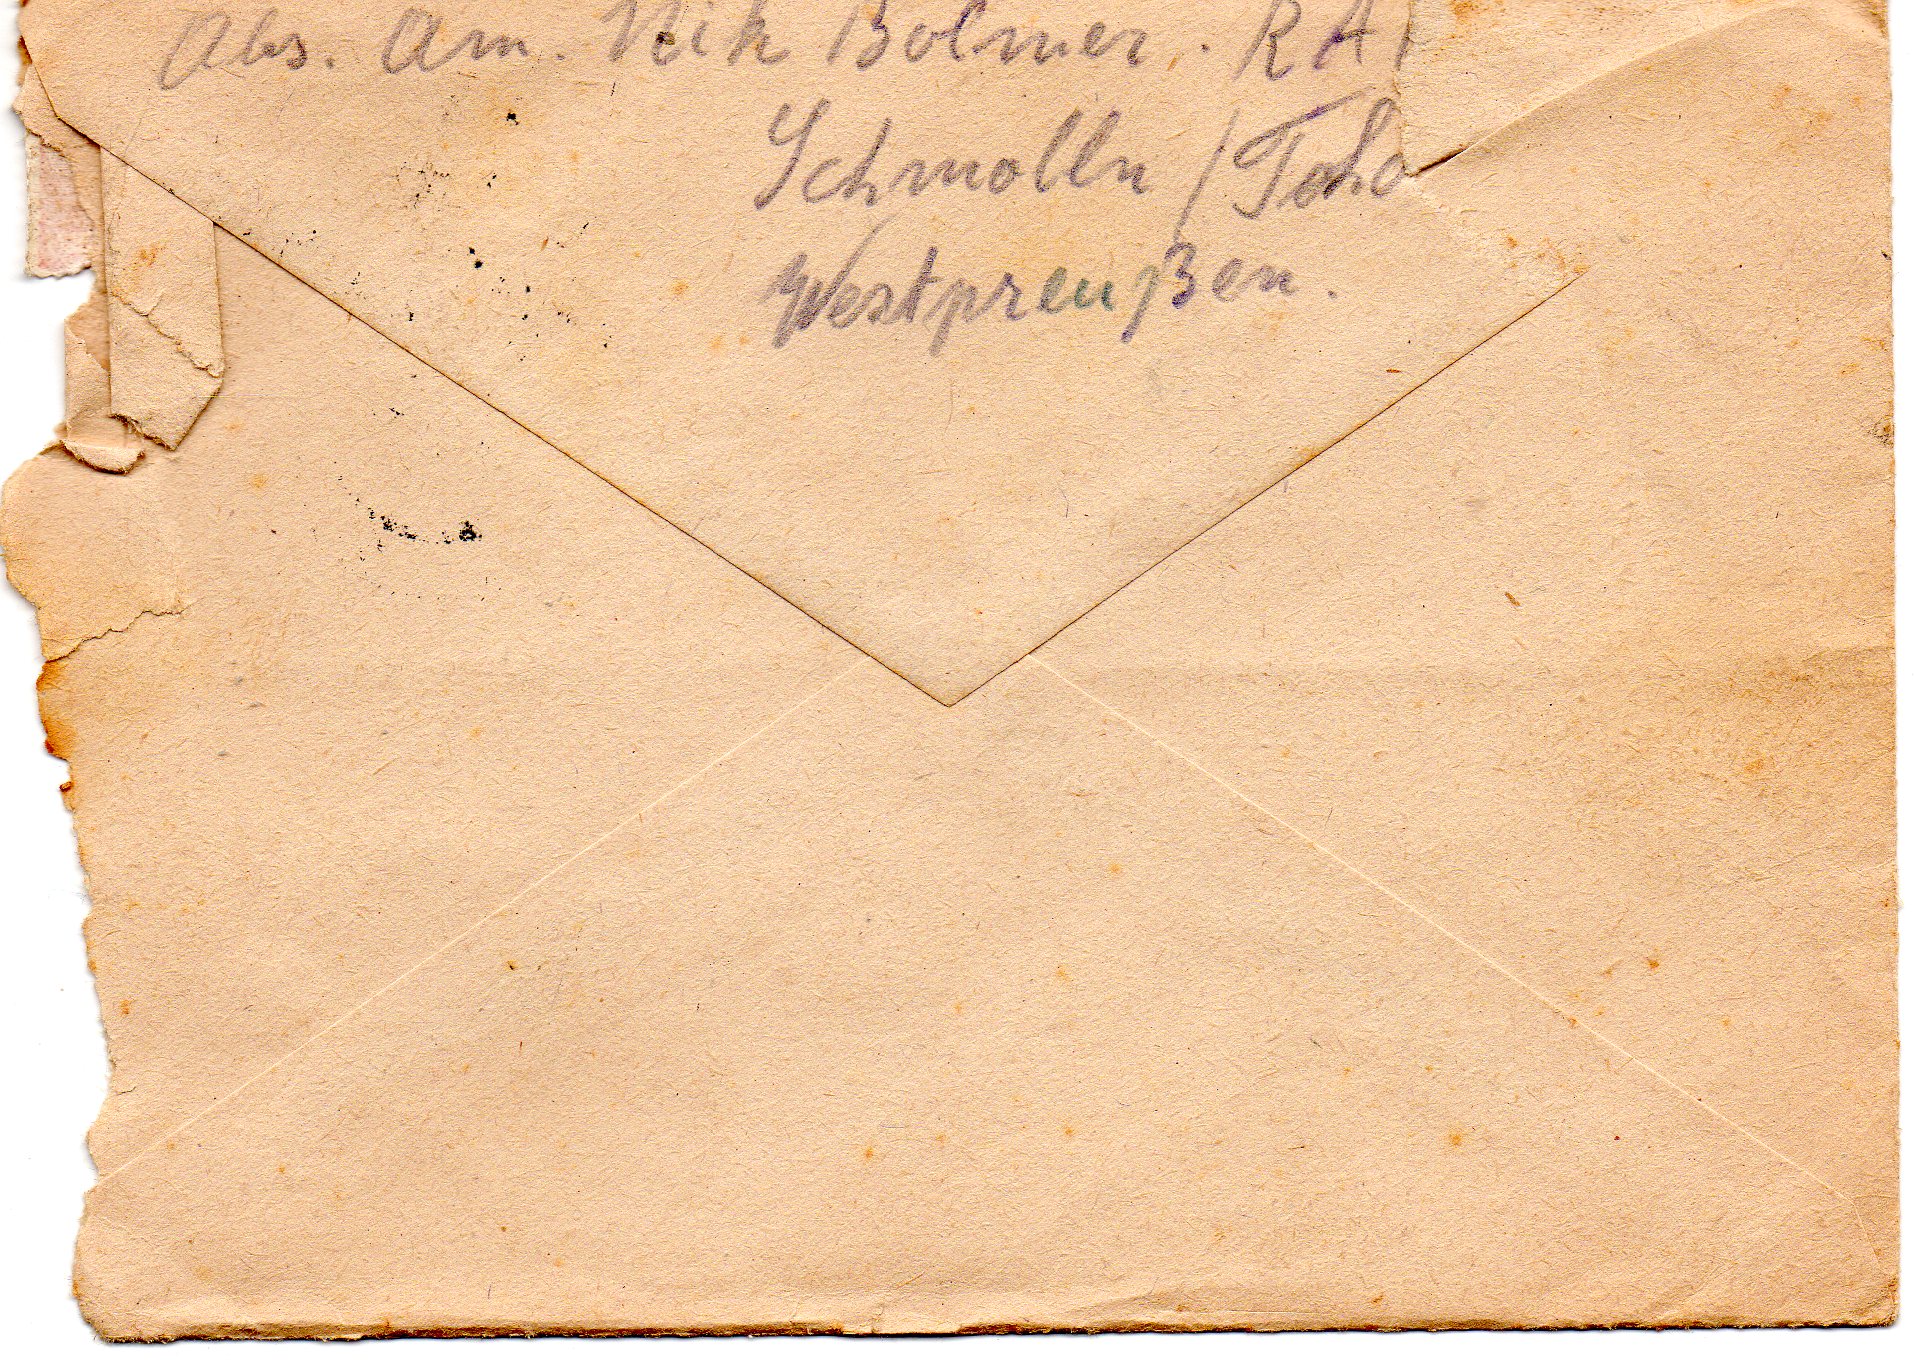 Abs. Am. Nik Bolmer. RA
Schmolln /
Westpreußen.